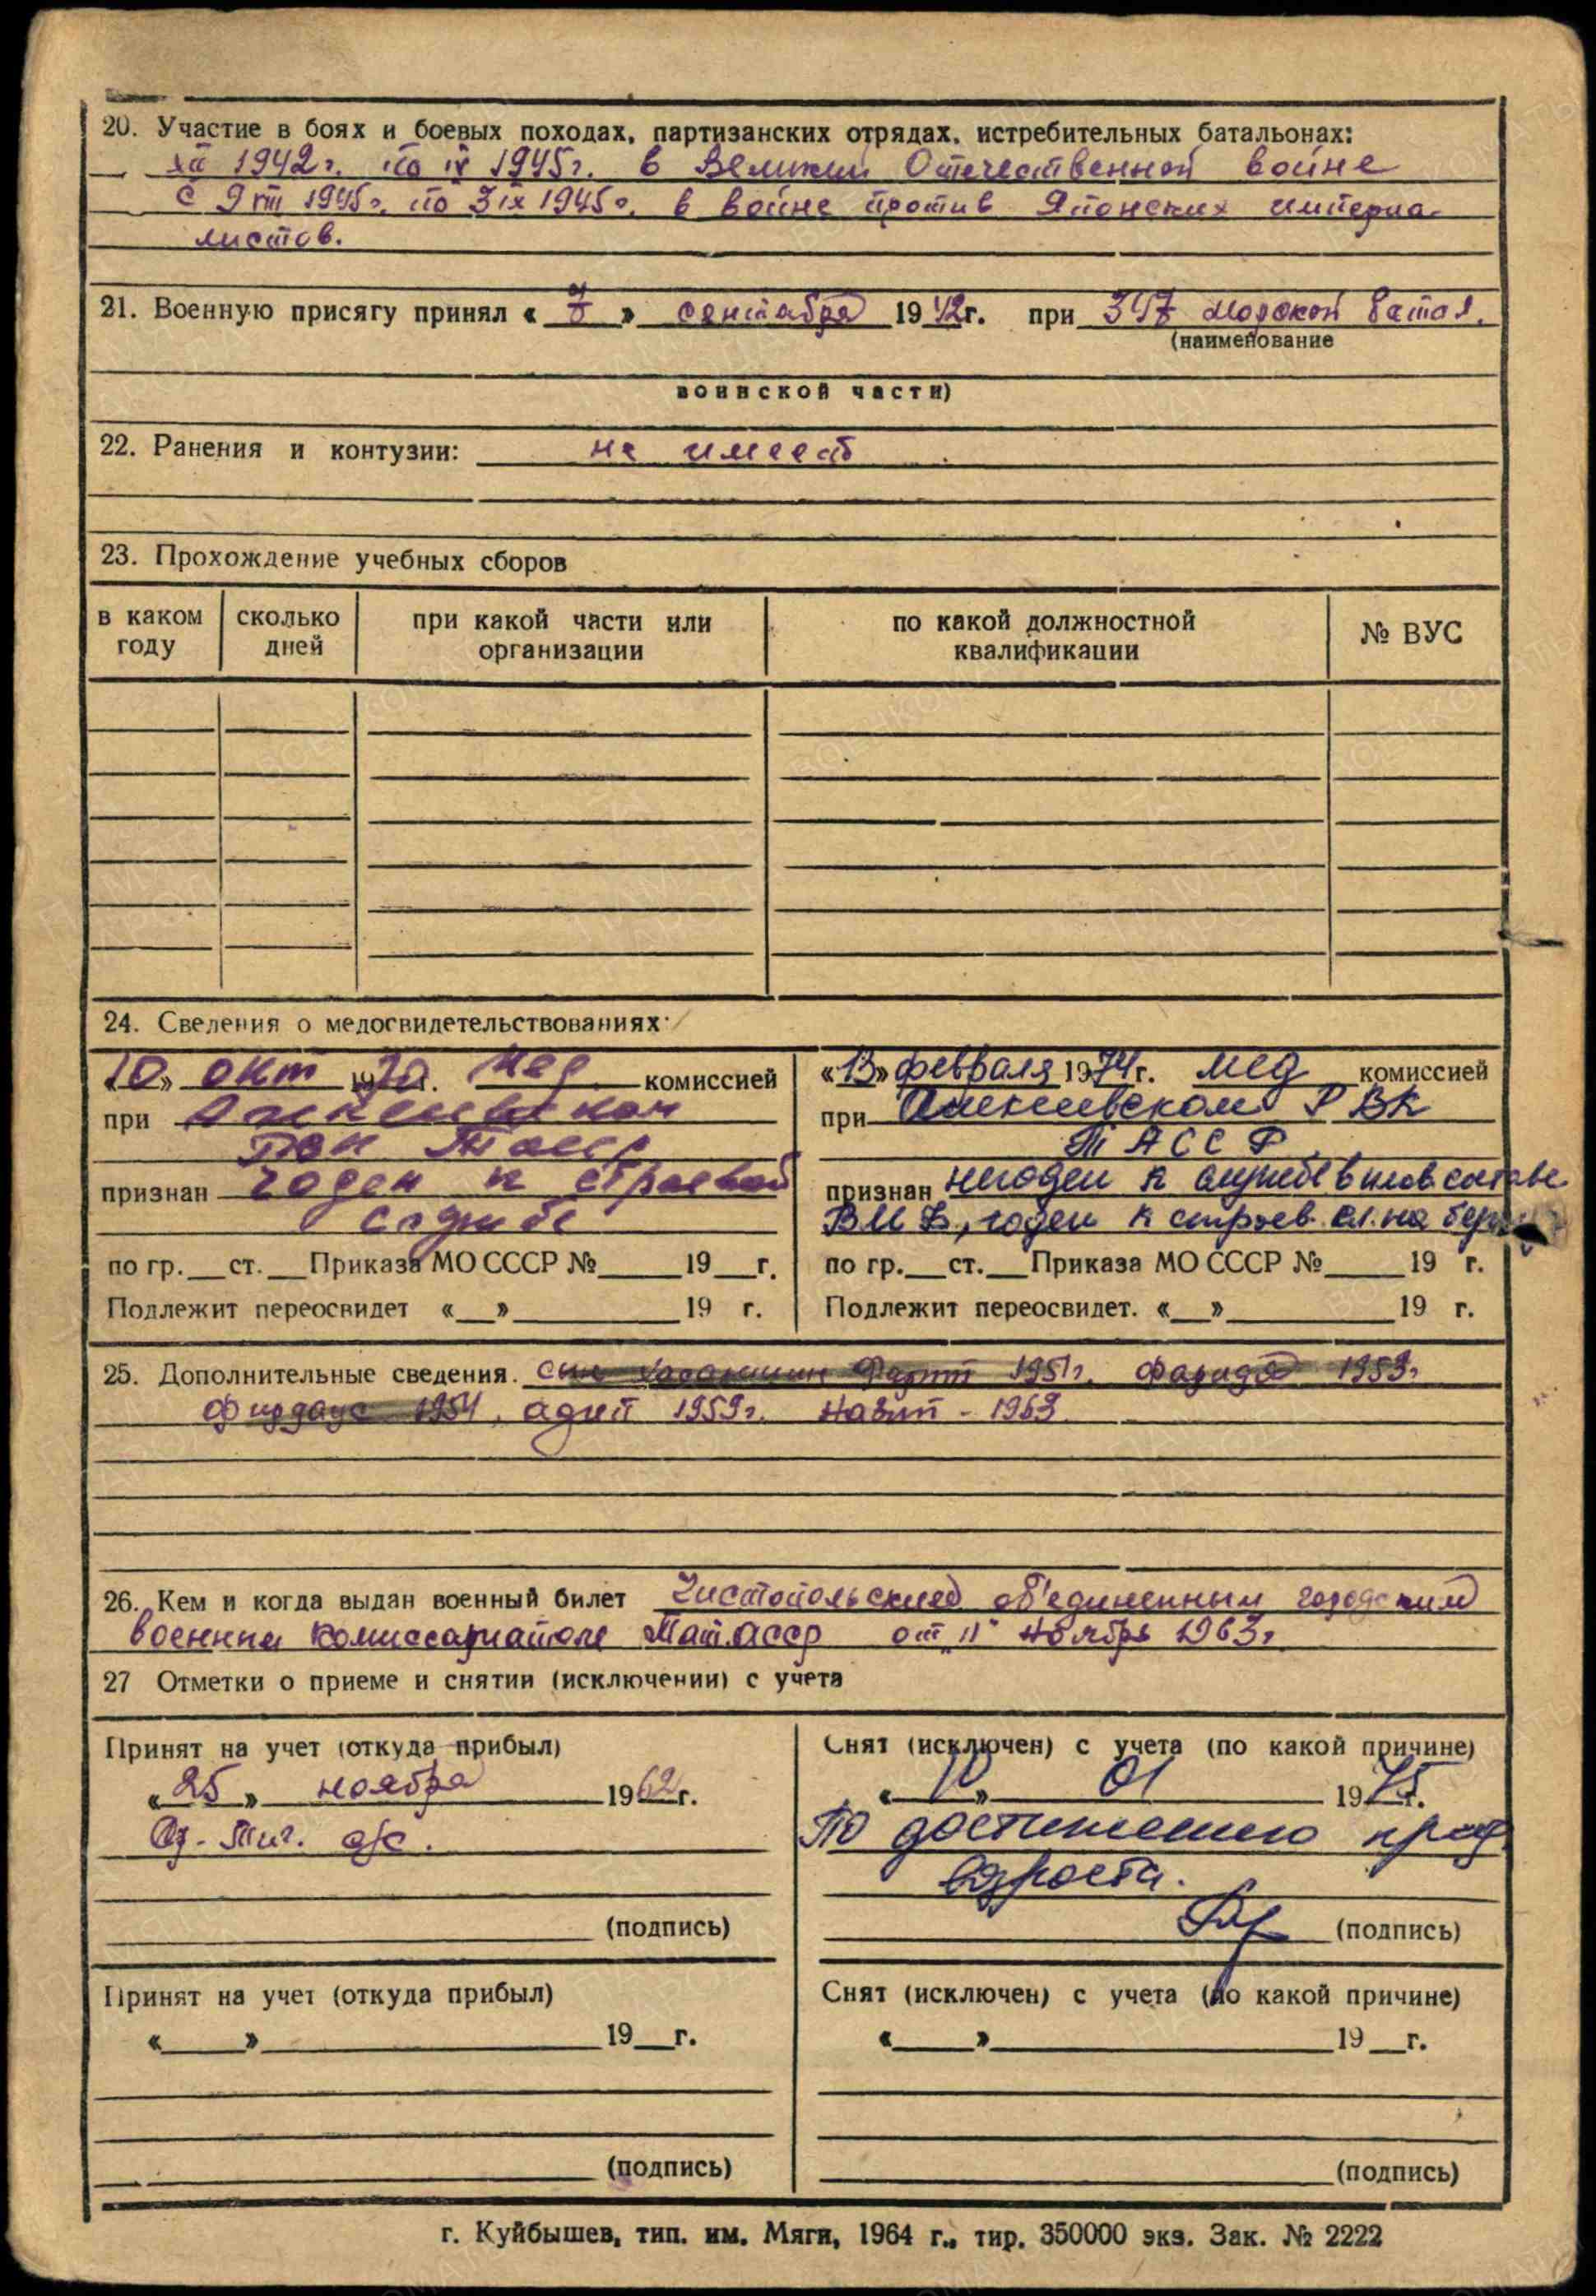 20. Участие в боях и боевых походах, партизанских отрядах, истребительных батальонах:
XII 1942 г. по IX 1945 г. в Великий Отечественной войне
с 9 VIII 1945 г. по 3 IX 1945 г. в войне против Японских империа-
листов.
21. Военную присягу принял « 7 » сентября 19 42 г. при 347 морской батал.
(наименование
воинской части)
22. Ранения и контузии: не имеет
23. Прохождение учебных сборов
в каком году сколько дней при какой части или организации по какой должностной квалификации № ВУС
24. Сведения о медосвидетельствованиях:
«10» окт 1970 г. мед комиссией
при Алексеевском
РВК ТАССР
признан годен к строевой
службе
по гр. ст. Приказа МО СССР № 19 г.
Подлежит переосвидет « » 19 г.
«13» февраля 1974 г. мед комиссией
при Алексеевском РВК
ТАССР
признан негоден к службе в плав составе
ВМФ, годен к строев. сл. на бер
по гр. ст. Приказа МО СССР № 19 г.
Подлежит переосвидет. « » 19 г.
25. Дополнительные сведения. сын 1951 г. Фарида 1953 г.
Фирдаус 1954, 1959 г. 1963
26. Кем и когда выдан военный билет Чистопольским об'единенным городским
военным комиссариатом Тат.АССР от "11" ноябрь 1963 г
27 Отметки о приеме и снятии (исключении) с учета
Принят на учет (откуда прибыл)
«25» ноября 1962 г.
(подпись)
Снят (исключен) с учета (по какой причине)
«10» 01 1975 г.
По достижению пред
возраста.
(подпись)
Принят на учет (откуда прибыл)
« » 19 г.
(подпись)
Снят (исключен) с учета (по какой причине)
« » 19 г.
(подпись)
г. Куйбышев, тип. им. Мяги, 1964 г., тир. 350000 экз. Зак. № 2222